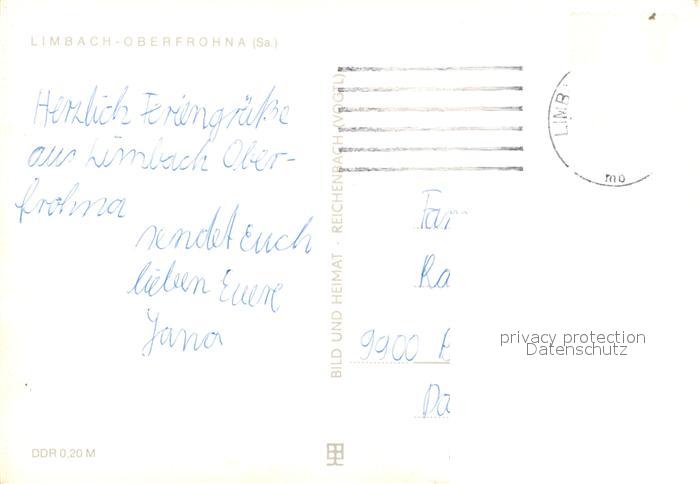 LIMBACH-OBERFROHNA (Sa.)
Herzlich Feriengrüße
aus Limbach Ober-
frohna
sendet Euch
lieben Euere
Jana
DDR 0,20 M
BILD UND HEIMAT · REICHENBACH (VOGTL)
LIMB
mb
Fam
Ra
9900
privacy protection
Datenschutz